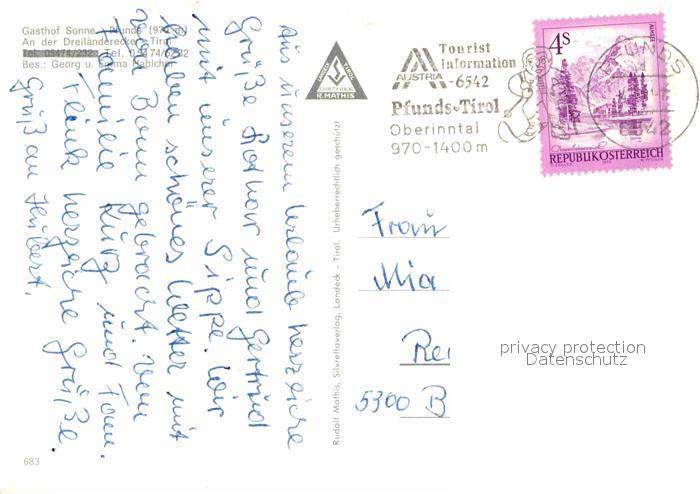 Gasthof Sonne - Pfunds (970 m)
An der Dreiländerecke - Tirol
Tel. 05474/232 Tel. 05474/5232
Bes.: Georg u. Emma Habicher
Aus unserem Urlaub herzliche
Grüße Lothar und Gertrud
mit unserer Sippe. Wir
haben schönes Wetter mit
von Bonn gebracht. Von
Familie Kurz und Fam.
Flink herzliche Grüße.
Gruß an Hubert.
683
R. MATHIS
Rudolf Mathis, Silvrettaverlag, Landeck - Tirol. Urheberrechtlich geschützt!
AUSTRIA
Tourist
Information
-6542
Pfunds-Tirol
Oberinntal
970-1400m
4S
ALMSEE
REPUBLIK ÖSTERREICH
PFUNDS
6542
Frau
Mia
Rei
5300 B
privacy protection
Datenschutz